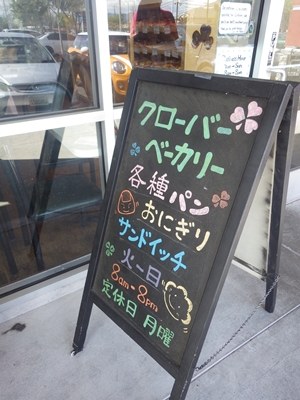 クローバー
ベーカリー
各種パン
おにぎり
サンドイッチ
火-日
8am-8pm
定休日 月曜